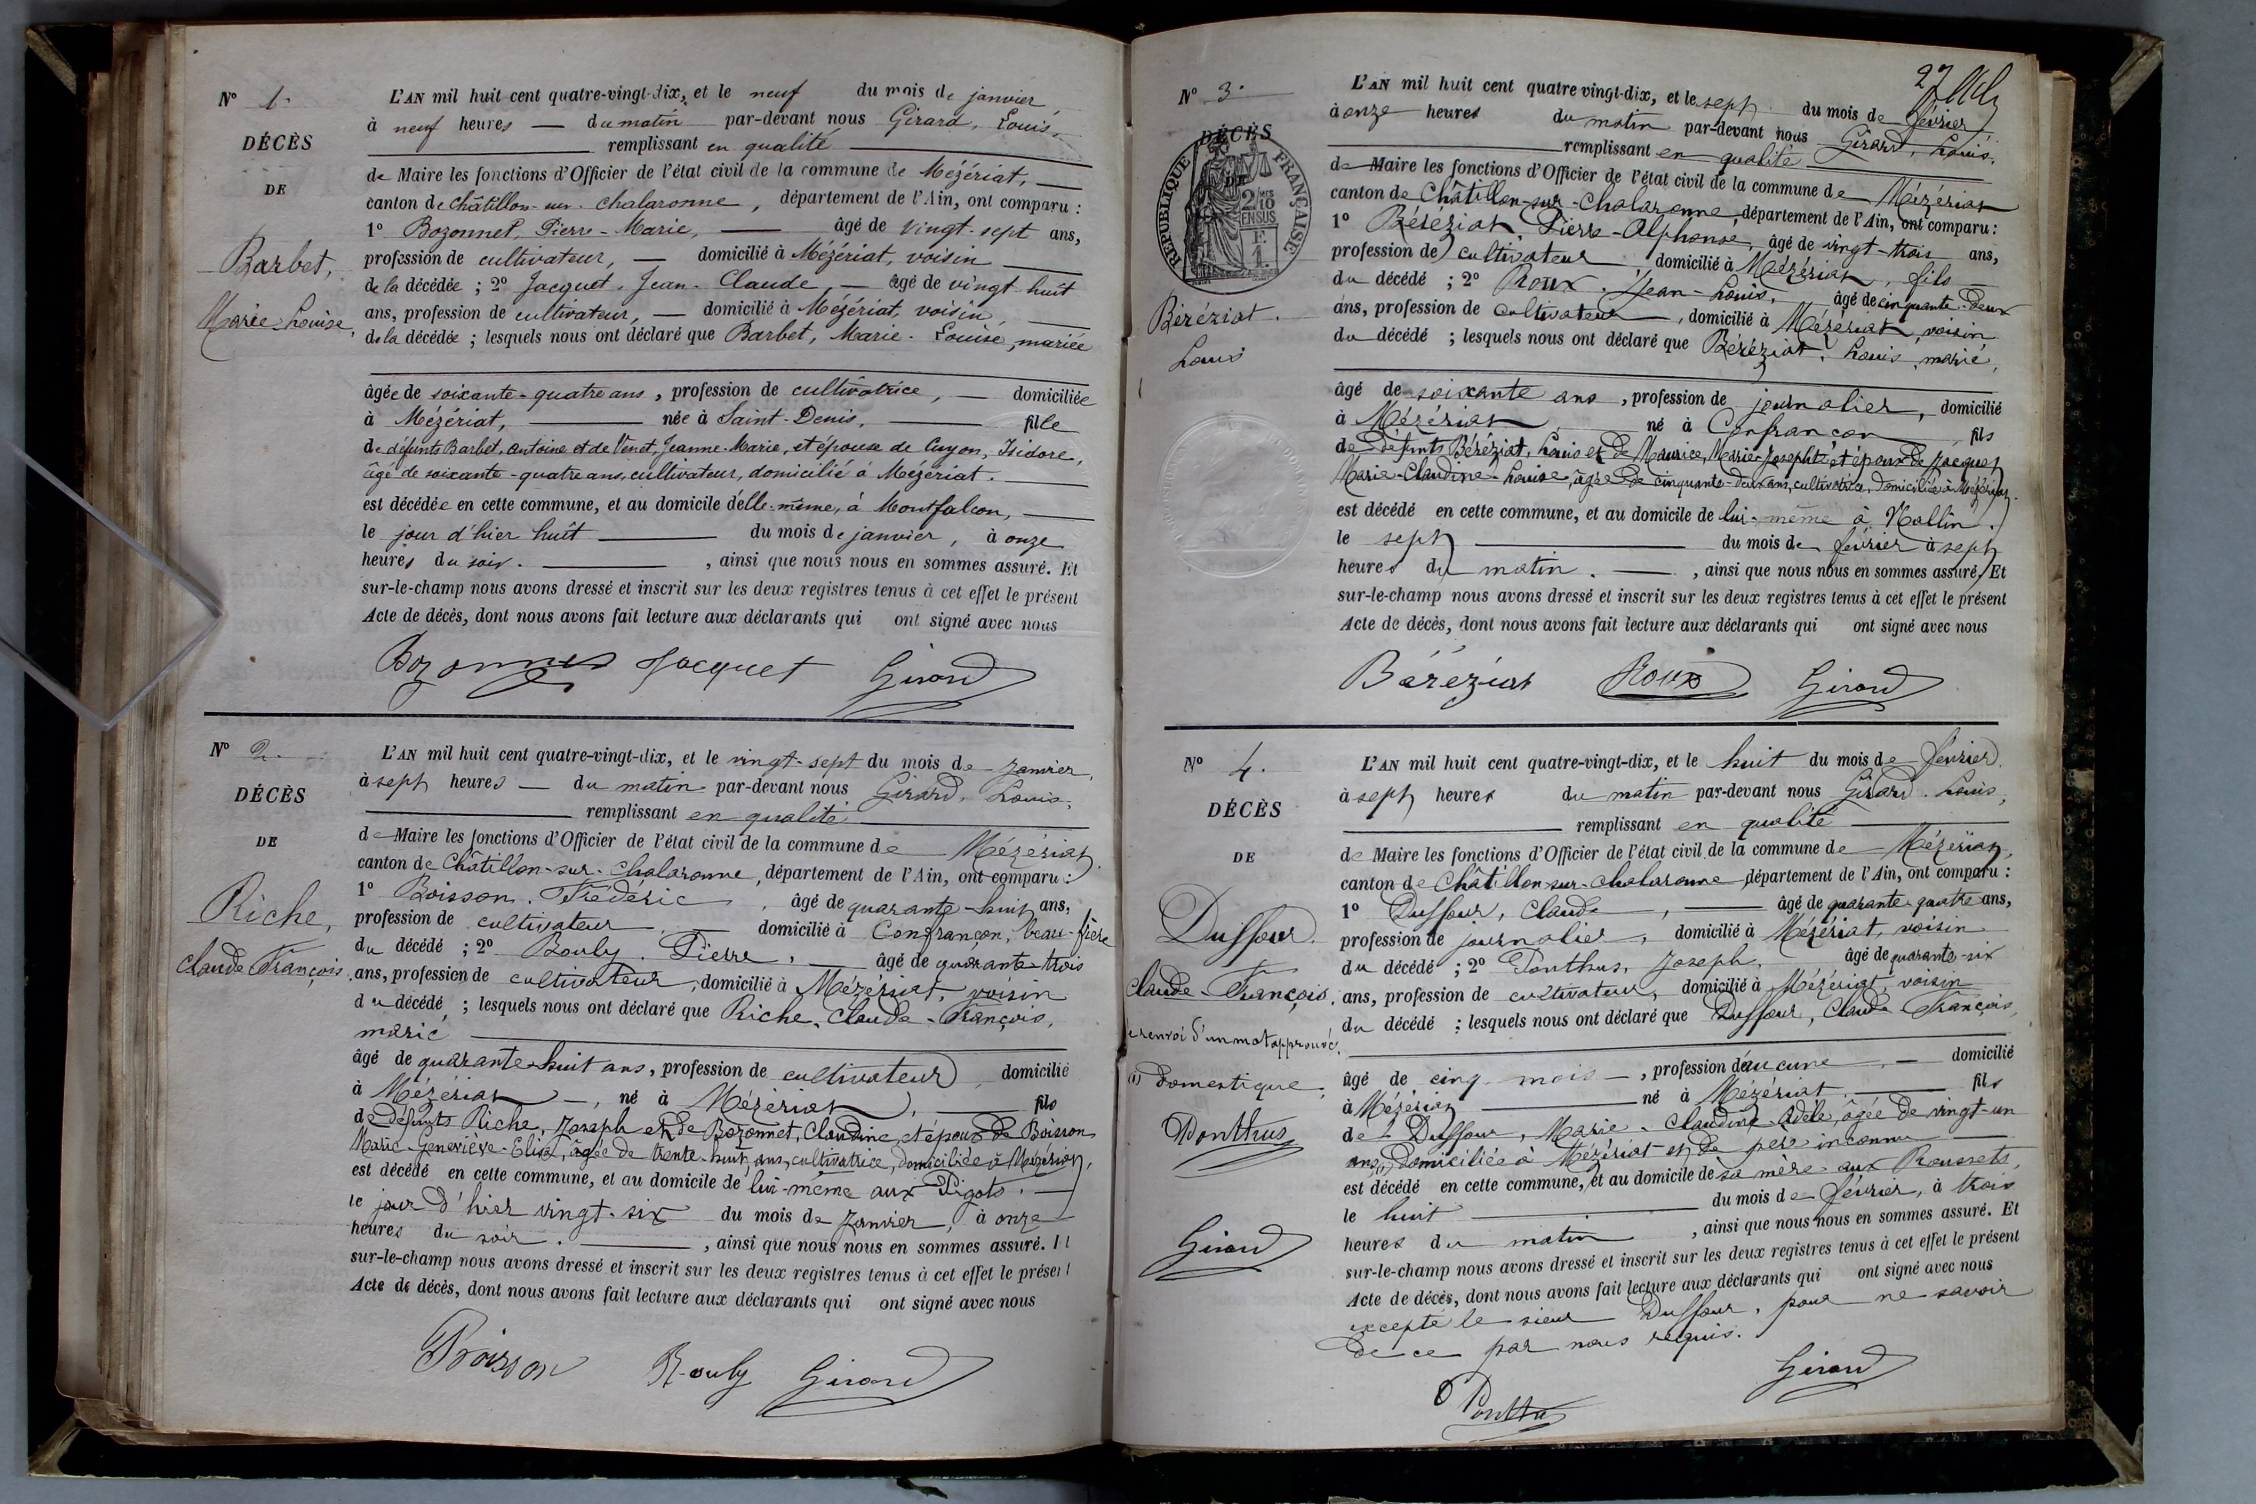 Nº 1.
DÉCÈS
DE
Barbet,
Marie-Louise,
L'AN mil huit cent quatre-vingt-dix, et le neuf du mois de janvier,
à neuf heures — du matin par-devant nous Girard, Louis,
remplissant en qualité
de Maire les fonctions d'Officier de l'état civil de la commune de Mézériat,
canton de Châtillon-sur-Chalaronne, département de l'Ain, ont comparu :
1º Bozonnet, Pierre-Marie, — âgé de vingt-sept ans,
profession de cultivateur, — domicilié à Mézériat, voisin
de la décédée ; 2º Jacquet, Jean-Claude, — âgé de vingt-huit
ans, profession de cultivateur, — domicilié à Mézériat, voisin
de la décédée ; lesquels nous ont déclaré que Barbet, Marie-Louise, mariée
âgée de soixante-quatre ans, profession de cultivatrice, — domiciliée
à Mézériat, née à Saint-Denis, fille
de défunts Barbet, Antoine et de Venet, Jeanne-Marie, et épouse de Guyon, Isidore,
âgé de soixante-quatre ans, cultivateur, domicilié à Mézériat.
est décédée en cette commune, et au domicile d'elle-même, à Montfalcon,
le jour d'hier huit du mois de janvier, à onze
heures du soir. , ainsi que nous nous en sommes assuré. Et
sur-le-champ nous avons dressé et inscrit sur les deux registres tenus à cet effet le présent
Acte de décès, dont nous avons fait lecture aux déclarants qui ont signé avec nous
Bozonnet Jacquet Girard
Nº 2.
DÉCÈS
DE
Riche,
Claude François.
L'AN mil huit cent quatre-vingt-dix, et le vingt-sept du mois de janvier,
à sept heures — du matin par-devant nous Girard, Louis,
remplissant en qualité
de Maire les fonctions d'Officier de l'état civil de la commune de Mézériat,
canton de Châtillon-sur-Chalaronne, département de l'Ain, ont comparu :
1º Boisson, Frédéric, âgé de quarante-huit ans,
profession de cultivateur, — domicilié à Confrançon, beau-frère
du décédé ; 2º Bouly, Pierre, — âgé de quarante-trois
ans, profession de cultivateur, domicilié à Mézériat, voisin
du décédé ; lesquels nous ont déclaré que Riche, Claude-François,
marié
âgé de quarante-huit ans, profession de cultivateur, domicilié
à Mézériat —, né à Mézériat, fils
de défunts Riche, Joseph et de Bozonnet, Claudine, et époux de Boisson
Marie-Geneviève-Elisa, âgée de trente-huit ans, cultivatrice, domiciliée à Mézériat,
est décédé en cette commune, et au domicile de lui-même aux Pigots,
le jour d'hier vingt-six du mois de janvier, à onze
heures du soir. , ainsi que nous nous en sommes assuré. Et
sur-le-champ nous avons dressé et inscrit sur les deux registres tenus à cet effet le présent
Acte de décès, dont nous avons fait lecture aux déclarants qui ont signé avec nous
Boisson Bouly Girard
27
Nº 3.
DÉCÈS
DE
RÉPUBLIQUE FRANÇAISE
2 10
EN SUS
F
1.
Béréziat.
Louis
L'AN mil huit cent quatre-vingt-dix, et le sept du mois de février,
à onze heures du matin par-devant nous Girard, Louis,
remplissant en qualité
de Maire les fonctions d'Officier de l'état civil de la commune de Mézériat
canton de Châtillon-sur-Chalaronne, département de l'Ain, ont comparu :
1º Béréziat, Pierre-Alphonse, âgé de vingt-trois ans,
profession de cultivateur, domicilié à Mézériat, fils
du décédé ; 2º Roux, Jean-Louis, âgé de cinquante-deux
ans, profession de cultivateur —, domicilié à Mézériat, voisin
du décédé ; lesquels nous ont déclaré que Béréziat, Louis, marié,
âgé de soixante ans, profession de journalier, domicilié
à Mézériat né à Confrançon fils
de défunts Béréziat, Louis et de Maurice, Marie-Josephte et époux de Jacquet
Marie-Claudine-Louise, âgée de cinquante-deux ans, cultivatrice, domiciliée à Mézériat.
est décédé en cette commune, et au domicile de lui-même à Nallin,
le sept du mois de février à sept
heures du matin. , ainsi que nous nous en sommes assuré. Et
sur-le-champ nous avons dressé et inscrit sur les deux registres tenus à cet effet le présent
Acte de décès, dont nous avons fait lecture aux déclarants qui ont signé avec nous
Béréziat Roux Girard
Nº 4.
DÉCÈS
DE
Duffour,
Claude-François.
renvoi d'un mot approuvé.
(1) Domestique,
Ponthus
Girard
L'AN mil huit cent quatre-vingt-dix, et le huit du mois de février,
à sept heures du matin par-devant nous Girard, Louis,
remplissant en qualité
de Maire les fonctions d'Officier de l'état civil de la commune de Mézériat,
canton de Châtillon-sur-Chalaronne, département de l'Ain, ont comparu :
1º Duffour, Claude, — âgé de quarante-quatre ans,
profession de journalier, domicilié à Mézériat, voisin
du décédé ; 2º Ponthus, Joseph, âgé de quarante-six
ans, profession de cultivateur, domicilié à Mézériat, voisin
du décédé ; lesquels nous ont déclaré que Duffour, Claude-François,
âgé de cinq mois —, profession d'aucune, — domicilié
à Mézériat né à Mézériat, fils
de Duffour, Marie-Claudine-Adèle, âgée de vingt-un
ans, (1) domiciliée à Mézériat et de père inconnu
est décédé en cette commune, et au domicile de sa mère aux Roussets,
le huit du mois de février, à trois
heures du matin , ainsi que nous nous en sommes assuré. Et
sur-le-champ nous avons dressé et inscrit sur les deux registres tenus à cet effet le présent
Acte de décès, dont nous avons fait lecture aux déclarants qui ont signé avec nous
excepté le sieur Duffour, pour ne savoir
de ce par nous requis.
Ponthus Girard